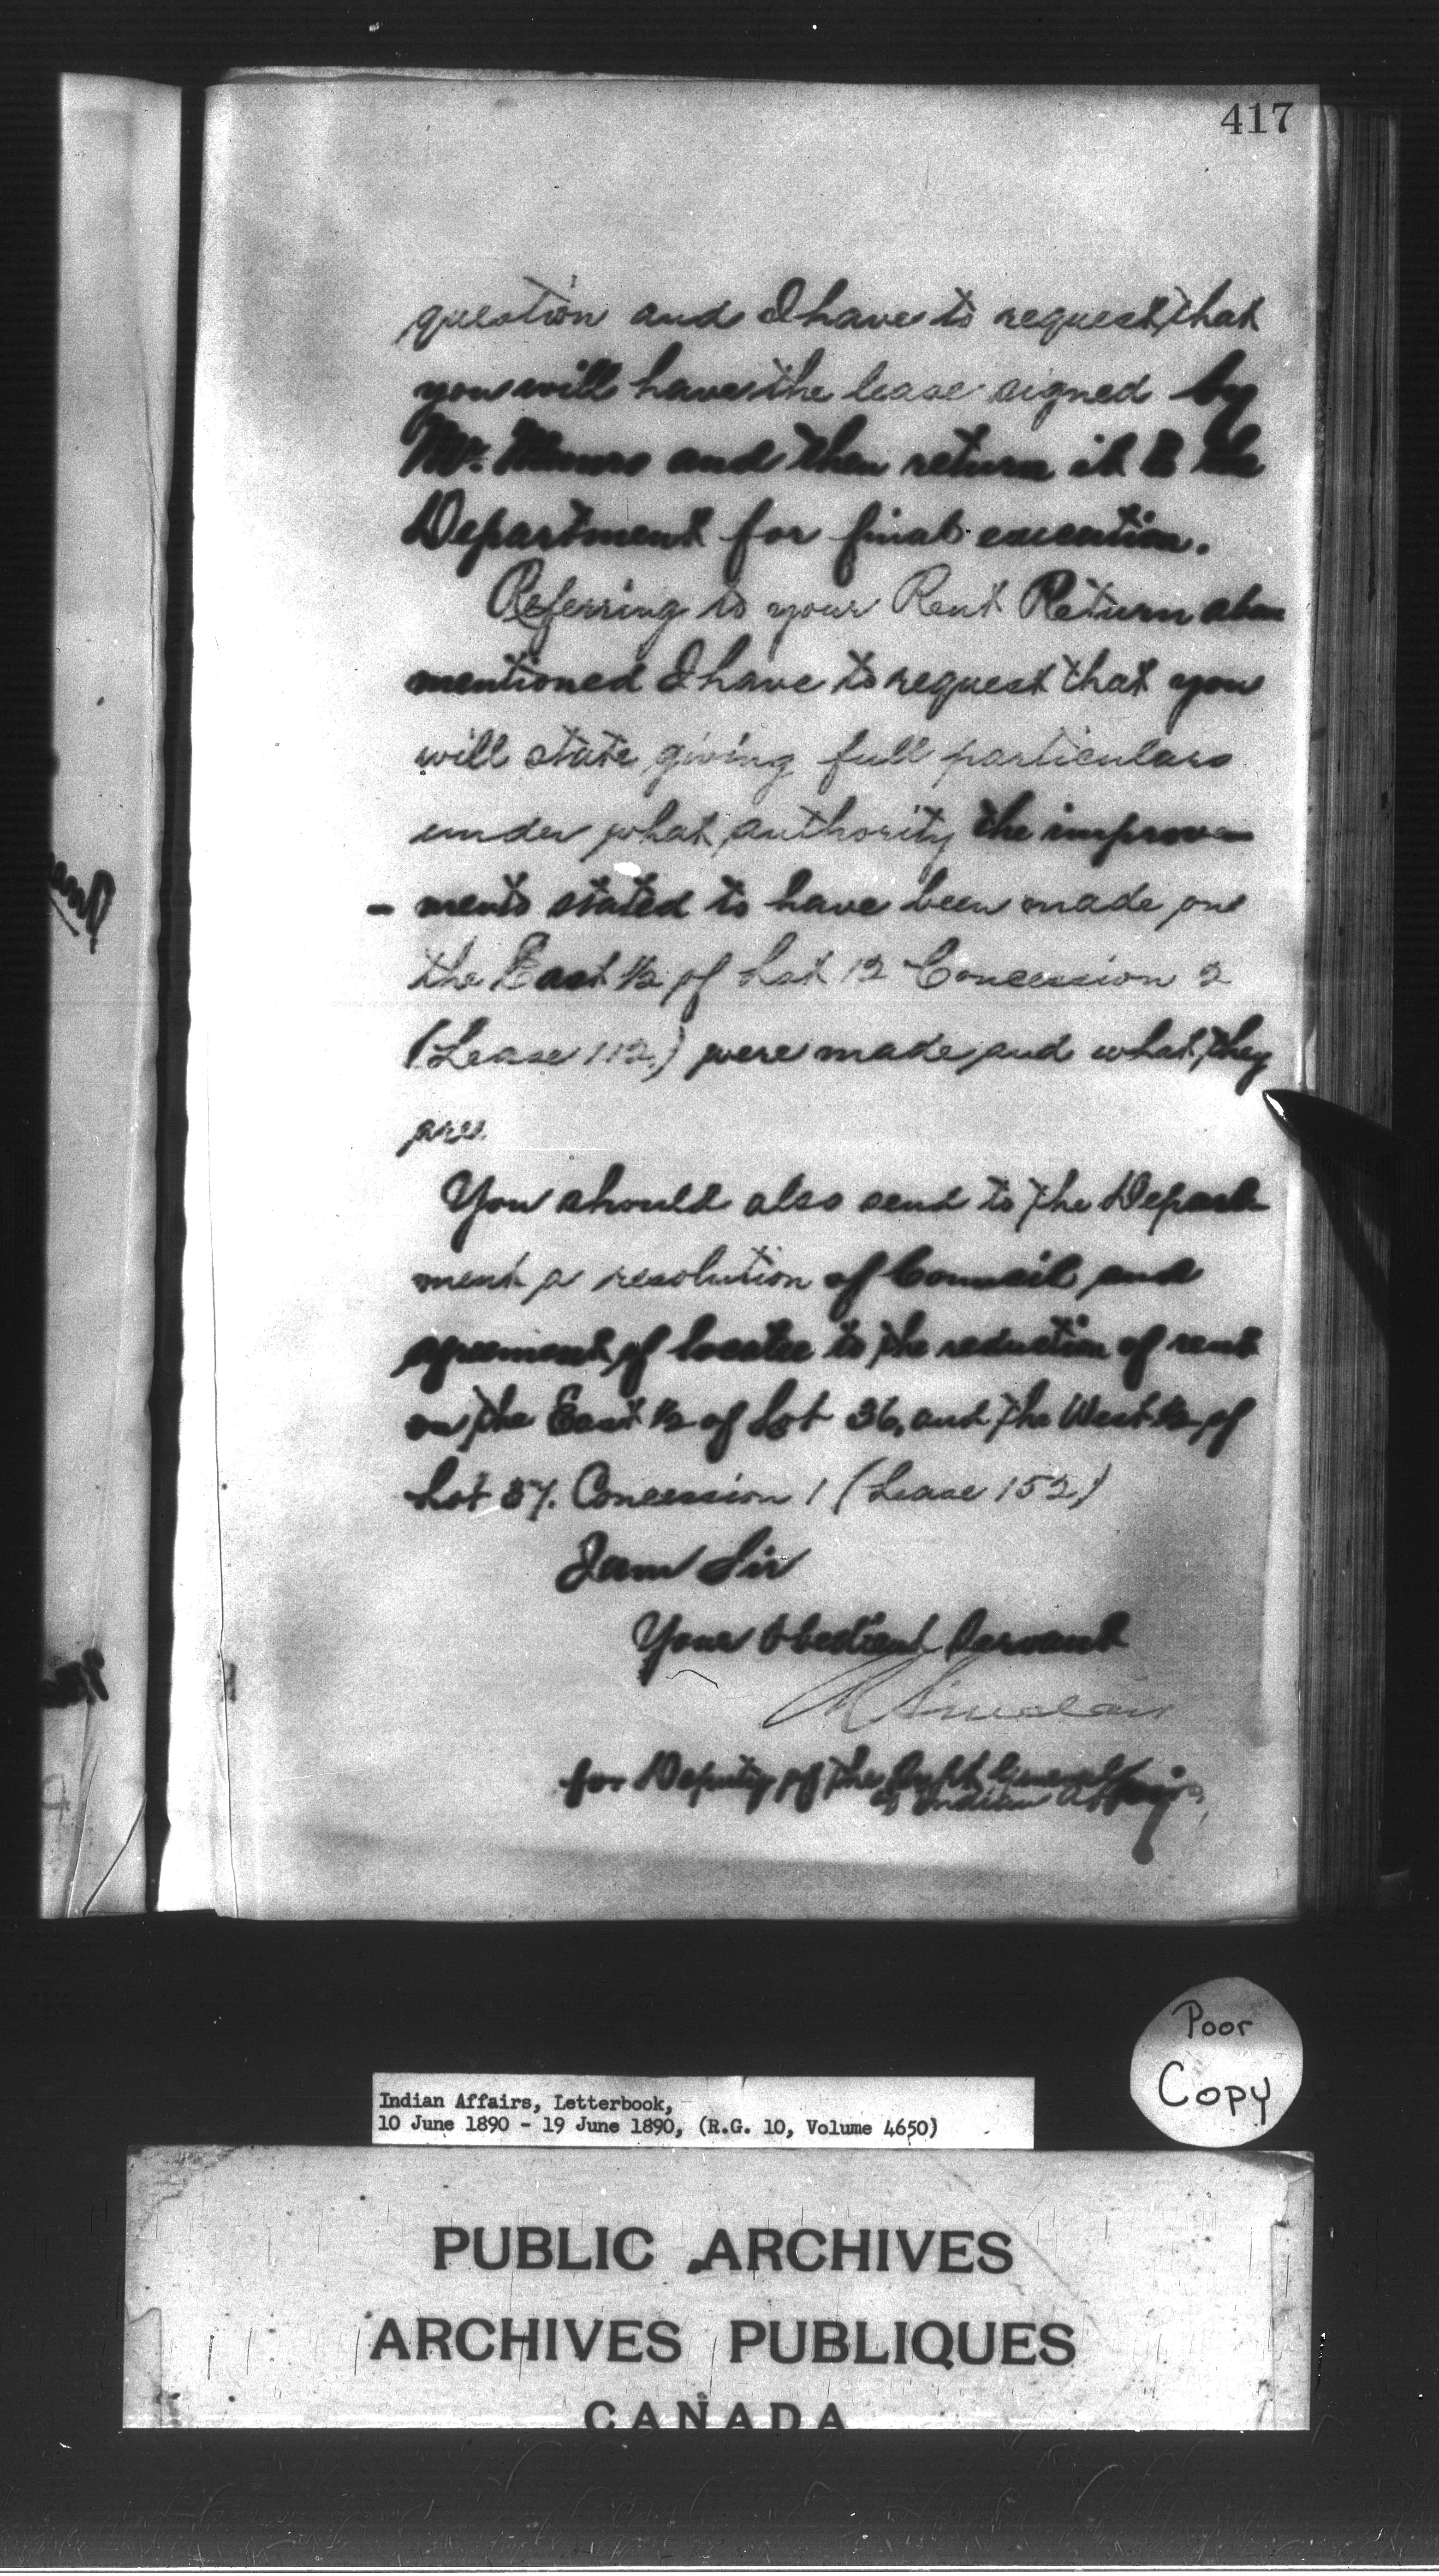 417
question and I have to request that
you will have the lease signed by
Mr. Munro and then return it to the
Department for final execution.
Referring to your Rent Return above
mentioned I have to request that you
will state giving full particulars
under what authority the improve
- ments stated to have been made on
the East ½ of Lot 12 Concession 2
(Lease 112) were made and what they
are.
You should also send to the Depart
ment a resolution of Council and
agreement of locatee to the reduction of rent
on the East ½ of Lot 36, and the West ½ of
Lot 37. Concession 1 (Lease 152)
I am Sir
Your obedient servant
R Sinclair
for Deputy of the Supt General
of Indian Affairs,
Poor
Copy
Indian Affairs, Letterbook,
10 June 1890 - 19 June 1890, (R.G. 10, Volume 4650)
PUBLIC ARCHIVES
ARCHIVES PUBLIQUES
CANADA